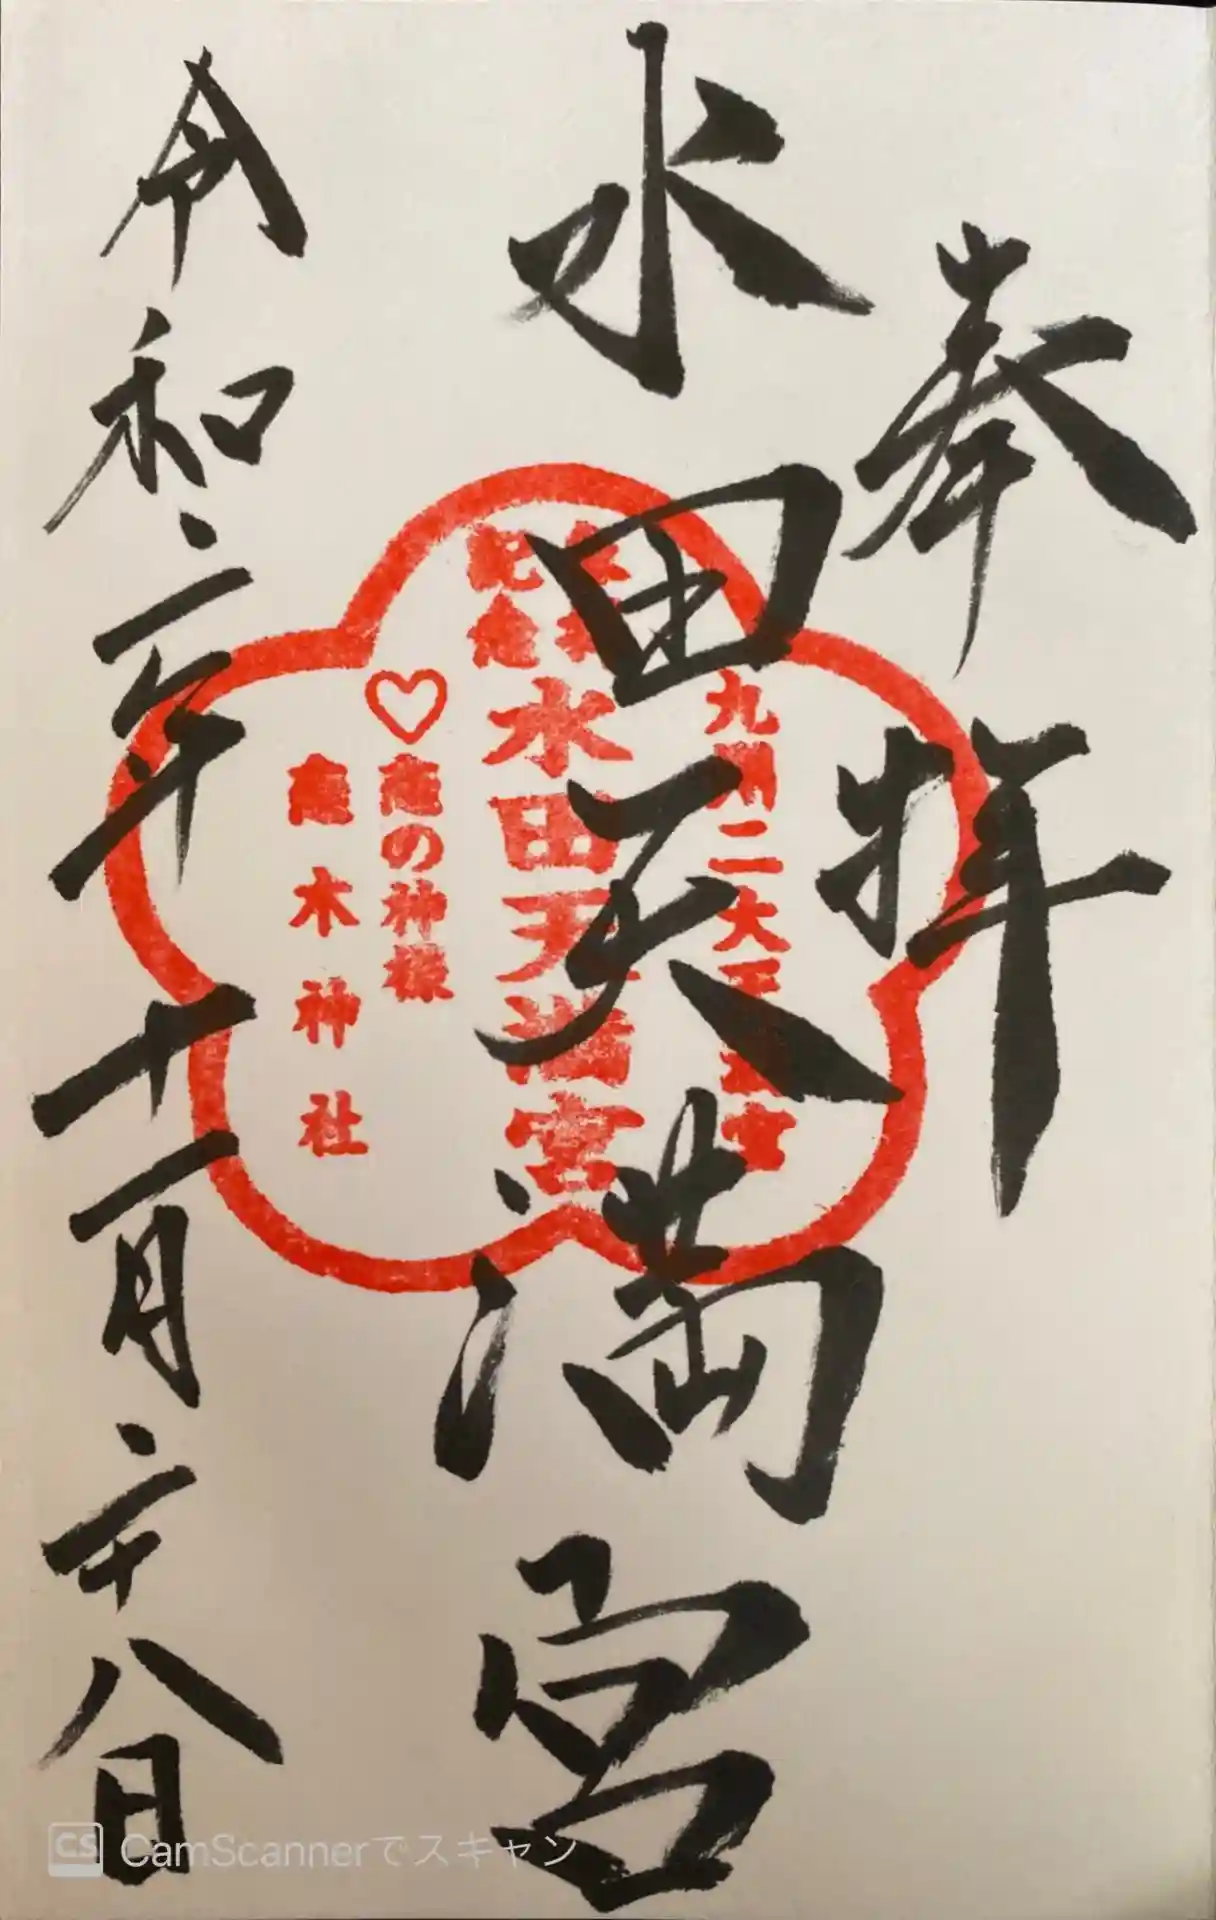 奉拝
水田天満宮
令和二年十一月二十八日
九州二大天満宮
参拝
記念
水田天満宮
♡恋の神様
恋木神社
CS CamScannerでスキャン